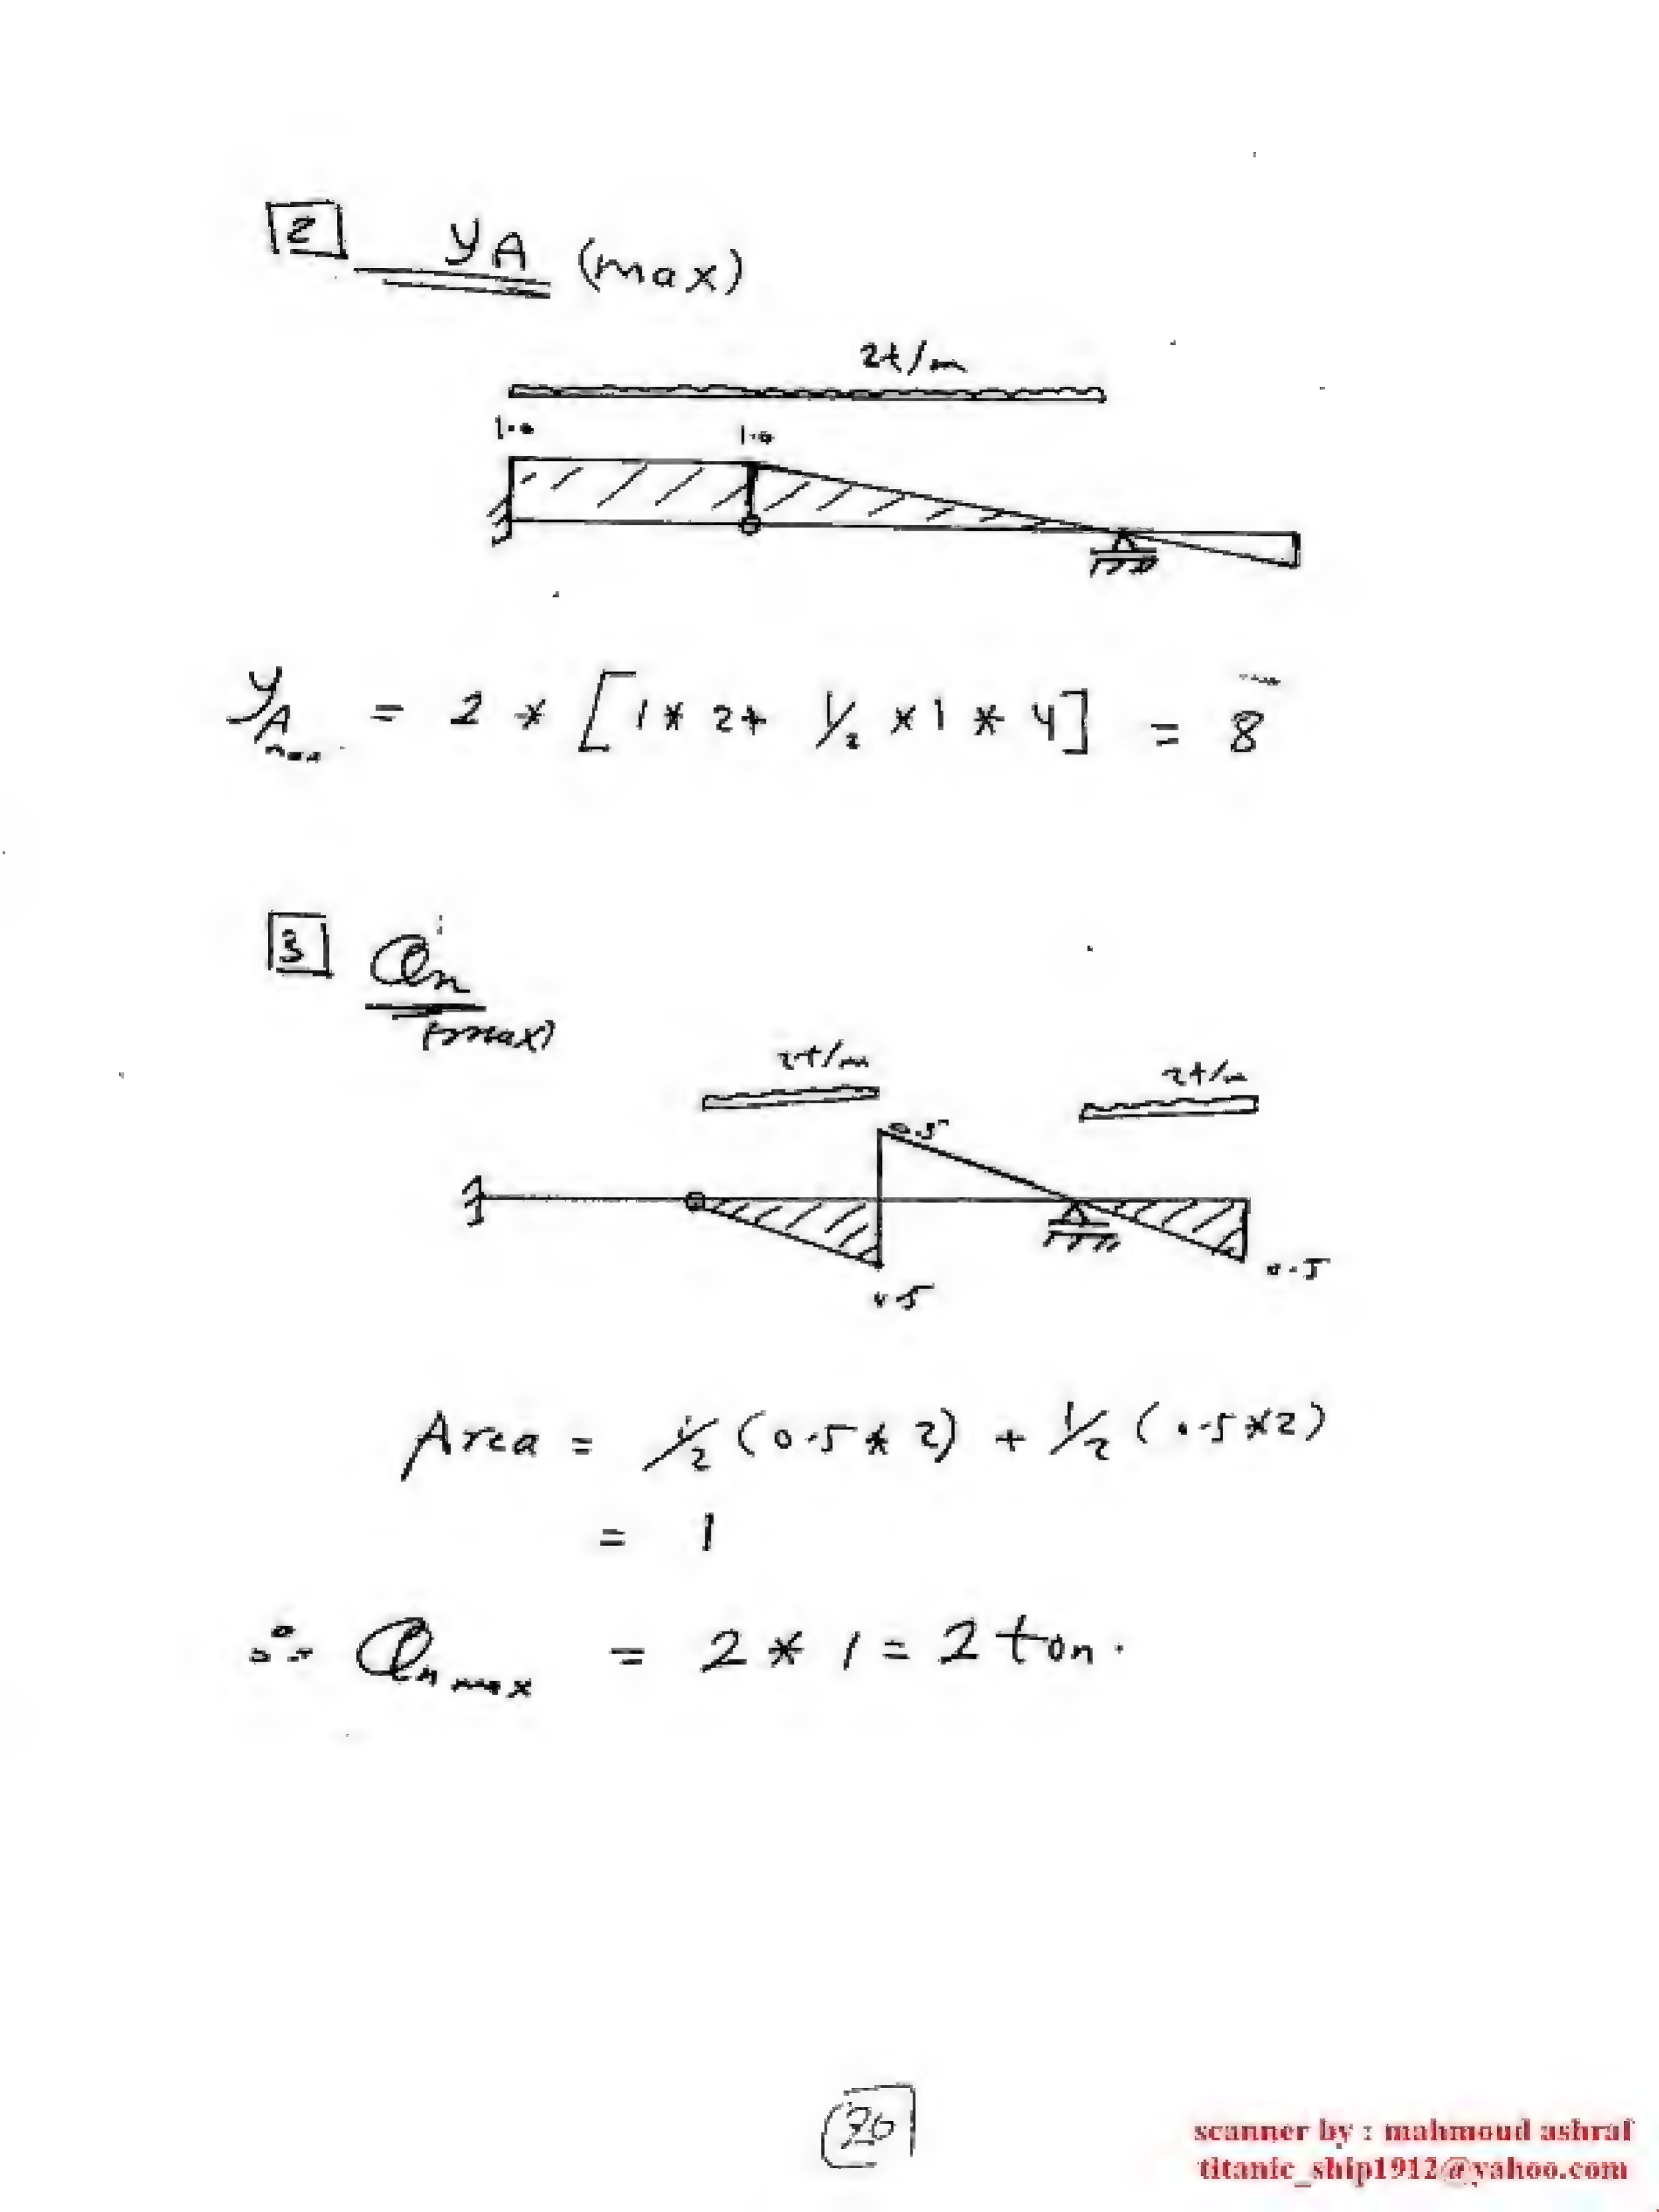 2 yA (max)
2t/m
1.0 1.0
yA max = 2 * [1 * 2 + 1/2 × 1 * 4] = 8
3 Qn
(max)
2t/m 2t/m
0.5
0.5
0.5
Area = 1/2 (0.5 * 2) + 1/2 (0.5 * 2)
= 1
∴ Qn max = 2 * 1 = 2 ton.
20
scanner by : mahmoud ashraf
titanic_ship1912@yahoo.com